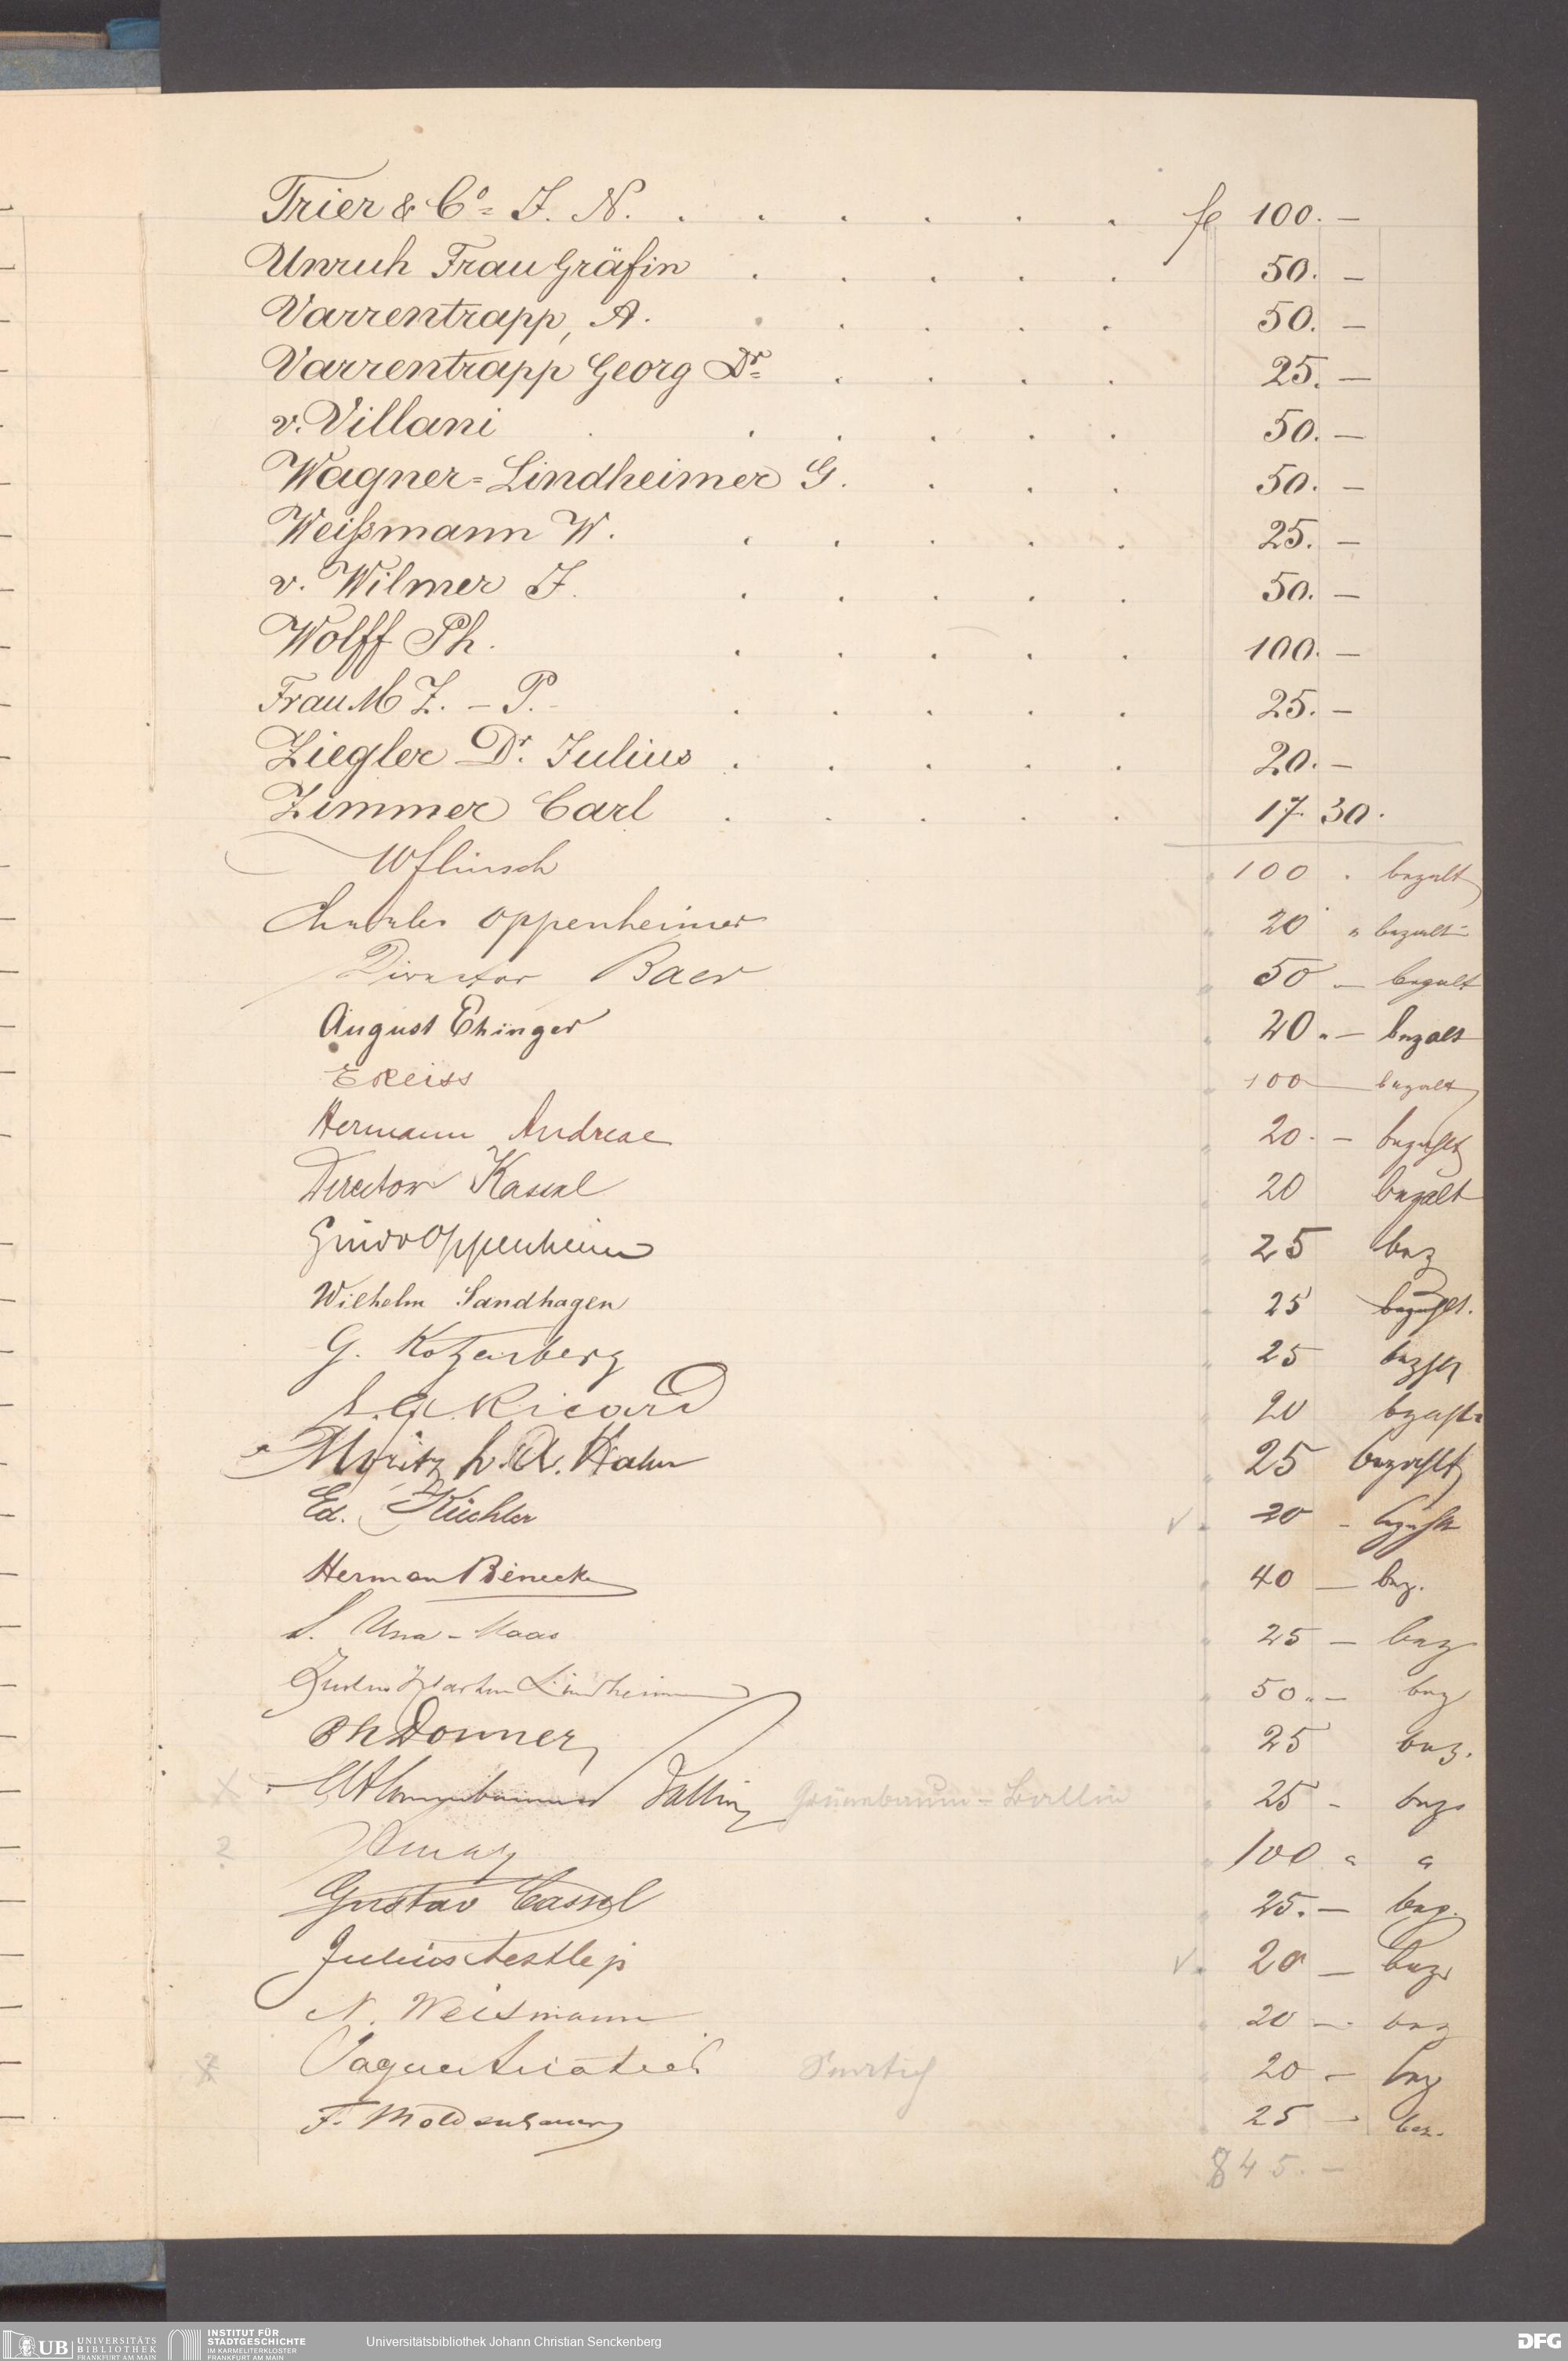 Trier & Co. J. N. . . . . . . fl 100. —
Unruh Frau Gräfin . . . . . 50. —
Varrentrapp, A. . . . . . 50. —
Varrentrapp Georg Dr. . . . . 25. —
v. Villani . . . . . . 50. —
Wagner-Lindheimer G. . . . 50. —
Weißmann W. . . . . . 25. —
v. Wilmer J. . . . . . 50. —
Wolff Ph. . . . . . 100. —
Frau M Z. – P. . . . . . 25. —
Ziegler Dr. Julius . . . . . 20. —
Zimmer Carl . . . . . 17. 30.
W Flinsch 100 . bezalt
Charles Oppenheimer 20 " bezalt
Director Baer 50 — bezalt
August Ehinger 20. — bezalt
E Reiss 100 — bezalt
Hermann Andreae 20. — bezahlt
Director Kassel 20 bezalt
Guido Oppenheim 25 bez
Wilhelm Sandhagen 25 bezahlt.
G. Kotzenberg 25 bezhlt
L. A. Ricard 20 bezahlt
Moritz L. A. Hahn 25 bezahlt
Ed. Küchler 20 - bezahlt
Herman Binecke 40 — bez.
S. Una-Maas 25 — bez
Lindheimer 50. — bez
Ph Donner 25 bez.
Ballin Grünebaum-Ballin 25 - bez
? 100 " "
Gustav Cassel 25. — bez.
Julius Nestle jr 20 — bez
N. Weismann 20 — bez
20 — bez
F. Moldenhauer 25 — bez.
845. —
UB UNIVERSITÄTS BIBLIOTHEK FRANKFURT AM MAIN
INSTITUT FÜR STADTGESCHICHTE IM KARMELITERKLOSTER FRANKFURT AM MAIN
Universitätsbibliothek Johann Christian Senckenberg
DFG